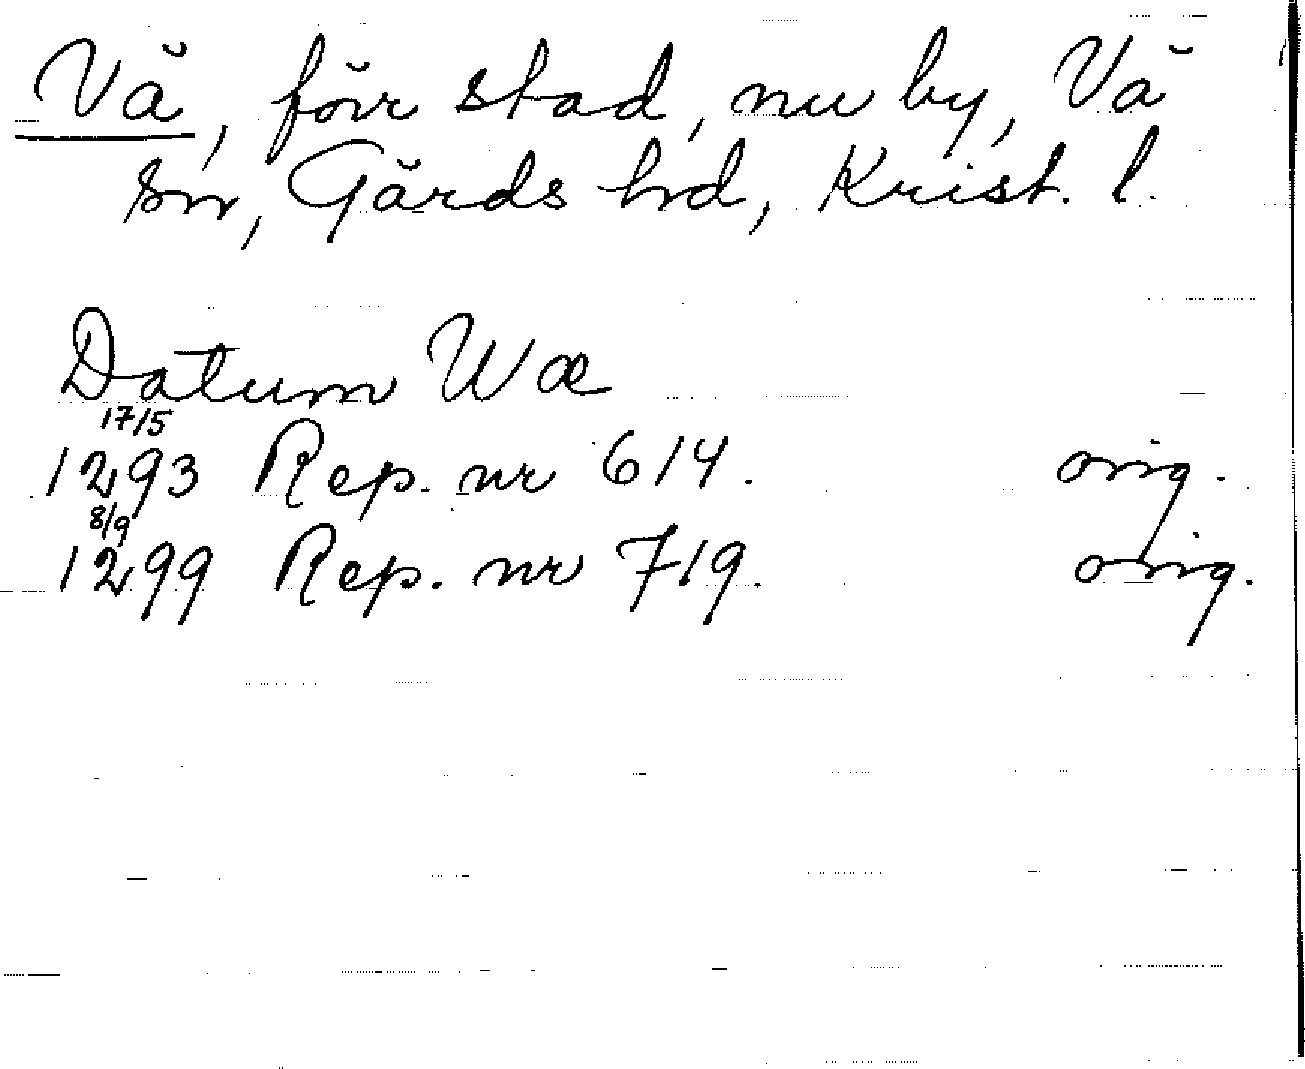 Vä, förr stad, nu by, Vä
sn, Gärds hd, Krist. l.
Datum Wæ
17/5
1293 Rep. nr 614. orig.
8/9
1299 Rep. nr 719. orig.